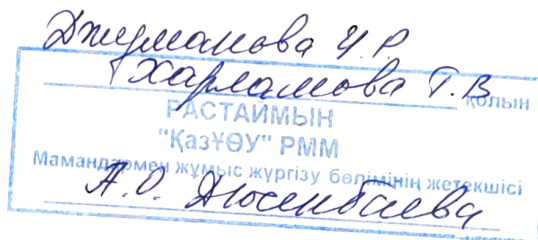 Джуманова И.Р.
Харламова Т.В. қолын
РАСТАЙМЫН
"ҚазҰӨУ" РММ
Мамандармен жұмыс жүргізу бөлімінің жетекшісі
А.О. Дюсенбаева